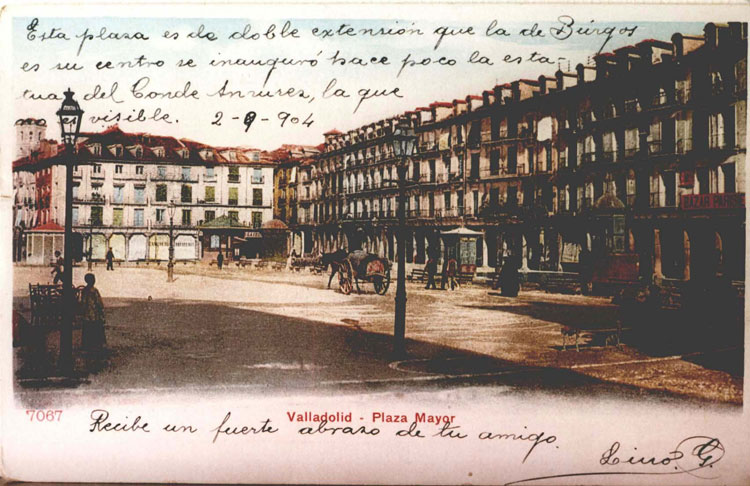 Esta plaza es de doble extensión que la de Búrgos
es su centro se inauguró hace poco la esta
tua del Conde Ansurez, la que
no es visible. 2-9-904
BAZAR PARIS
7067
Valladolid - Plaza Mayor
Recibe un fuerte abrazo de tu amigo.
Lino. G.